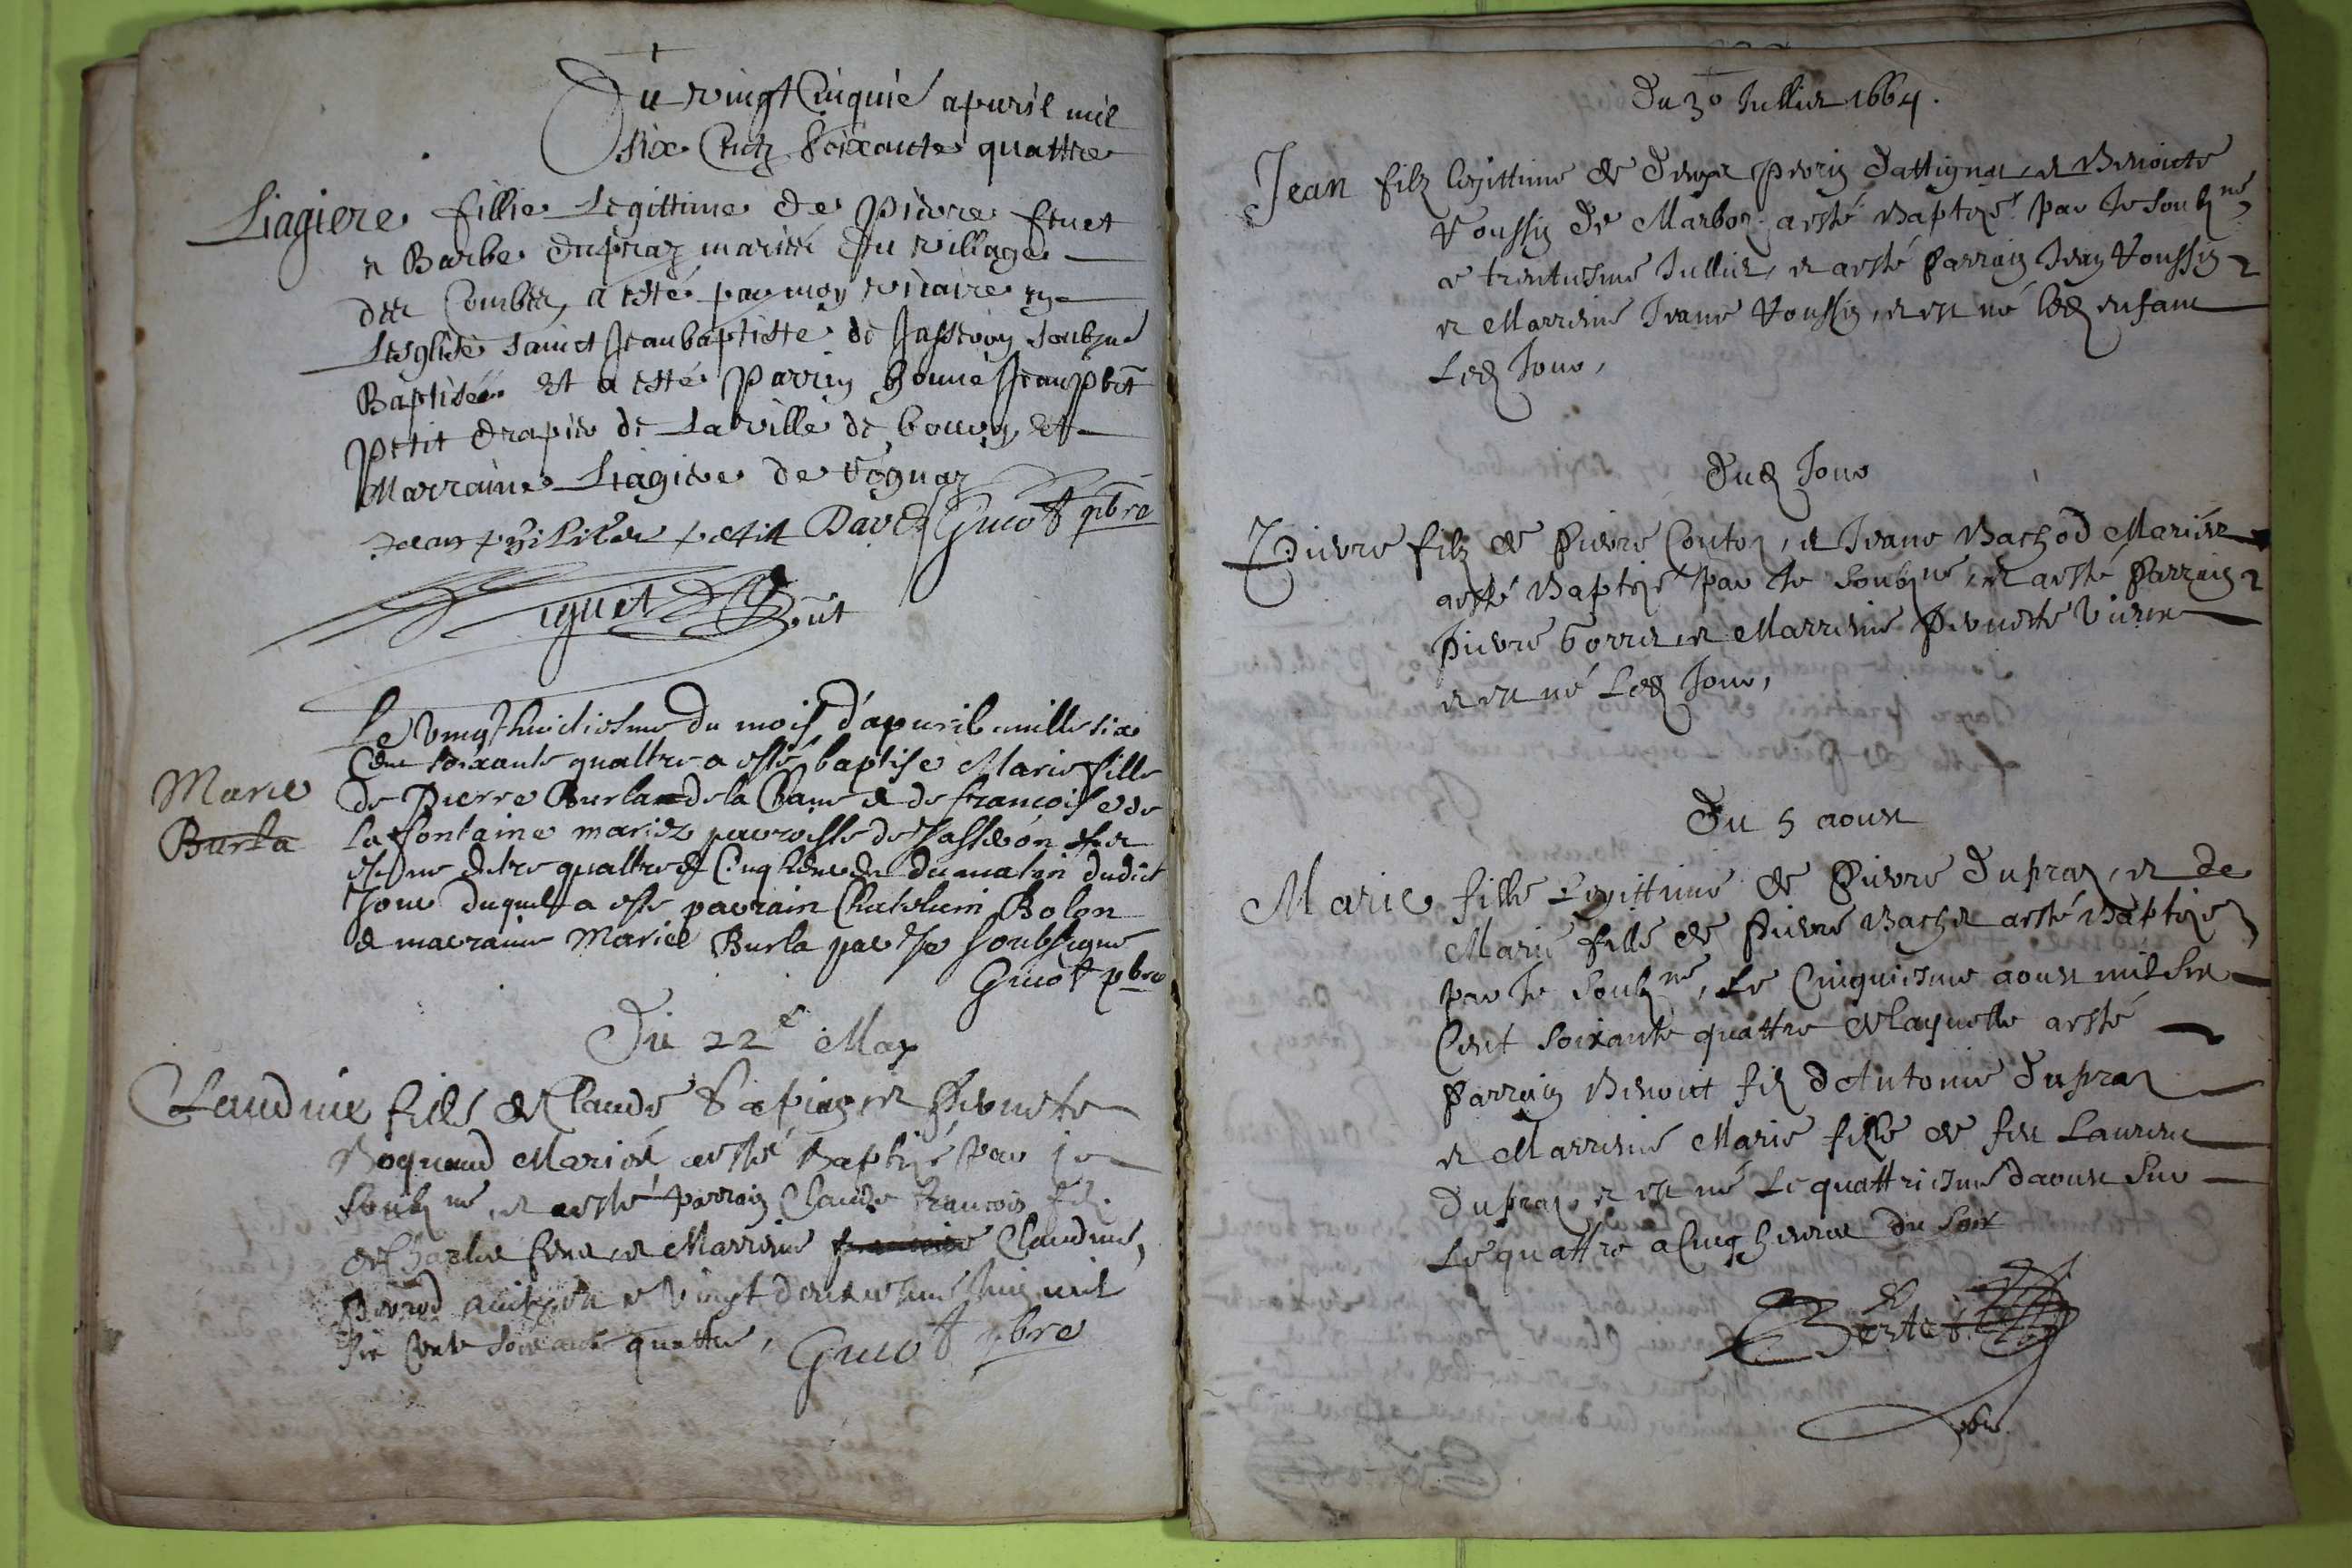 Du vingt Cinquié apvril mil
six Centz Soixante quattre
Liagiere fillie Legittime de Pierre fruet
et Barbe dupraz mariés du village
des Combes, a esté par moy vicaire en
Lesglise sainct Jean baptiste de Jasseron soubzné
Baptisée et a esté Parrin honné Jean phet
Petit drapier de La ville de bourg, et
Marraine Liagiere de Vognaz
Jean philiber petit Davd Guiot pbre
Liguet
Le vingthuictiesme du mois d'apuril mille six
Cent soixante quattre a esté baptise Marie fille
Marie
Burla
de Pierre Burla de la Chane et de francoise de
la fontaine mariez parroisse de Jasseron et
est nee entre quattre et Cinq heures du matin dudict
Jour duquel a este parrain Chatelain Bolon
et marraine Mariel Burla par Je soubsigne
Guiot pbre
Du 22e May
Claudine fille de Claude Papiaz et Pernete
Boquand Mariés a esté Baptizé par je
soubzné, et a esté parrain Claude francois filz
de Charles et Marreine Claudine,
Perrod vingt deuxiesme mil
six Cent soixante quattre, Guiot pbre
Du 30 Jullier 1664.
Jean filz legittime de Perrin dattignat, et Benoicte
Voussin de Marboz a esté Baptizé par Je soubzné
ce trentiesme Jullier, et a esté Parrain Jean Voussin
et Marreine Jeane Voussin, et est né led enfant
Led Jour,
Dud Jour
Pierre filz de Pierre Couton, et Jeane Bachod Mariés
a esté Baptizé par Je Soubzné, et a esté Parrain
Pierre borrer, et Marreine Pernete
et est né Led Jour,
Du 5 aoust
Marie fille Legittime de Pierre dupraz, et de
Marie fille de Pierre Bachet a esté Baptize
par Je Soubzné, Le Cinquiesme aoust mil six
Cent soixante quattre de laquelle a esté
Parrain Benoict filz dAntoine dupraz
et Marreine Marie fille de feu Laurent
dupraz, et est né Le quattriesme daoust sur
Le quattre a Cinq heures du soir
Bertet
pbre